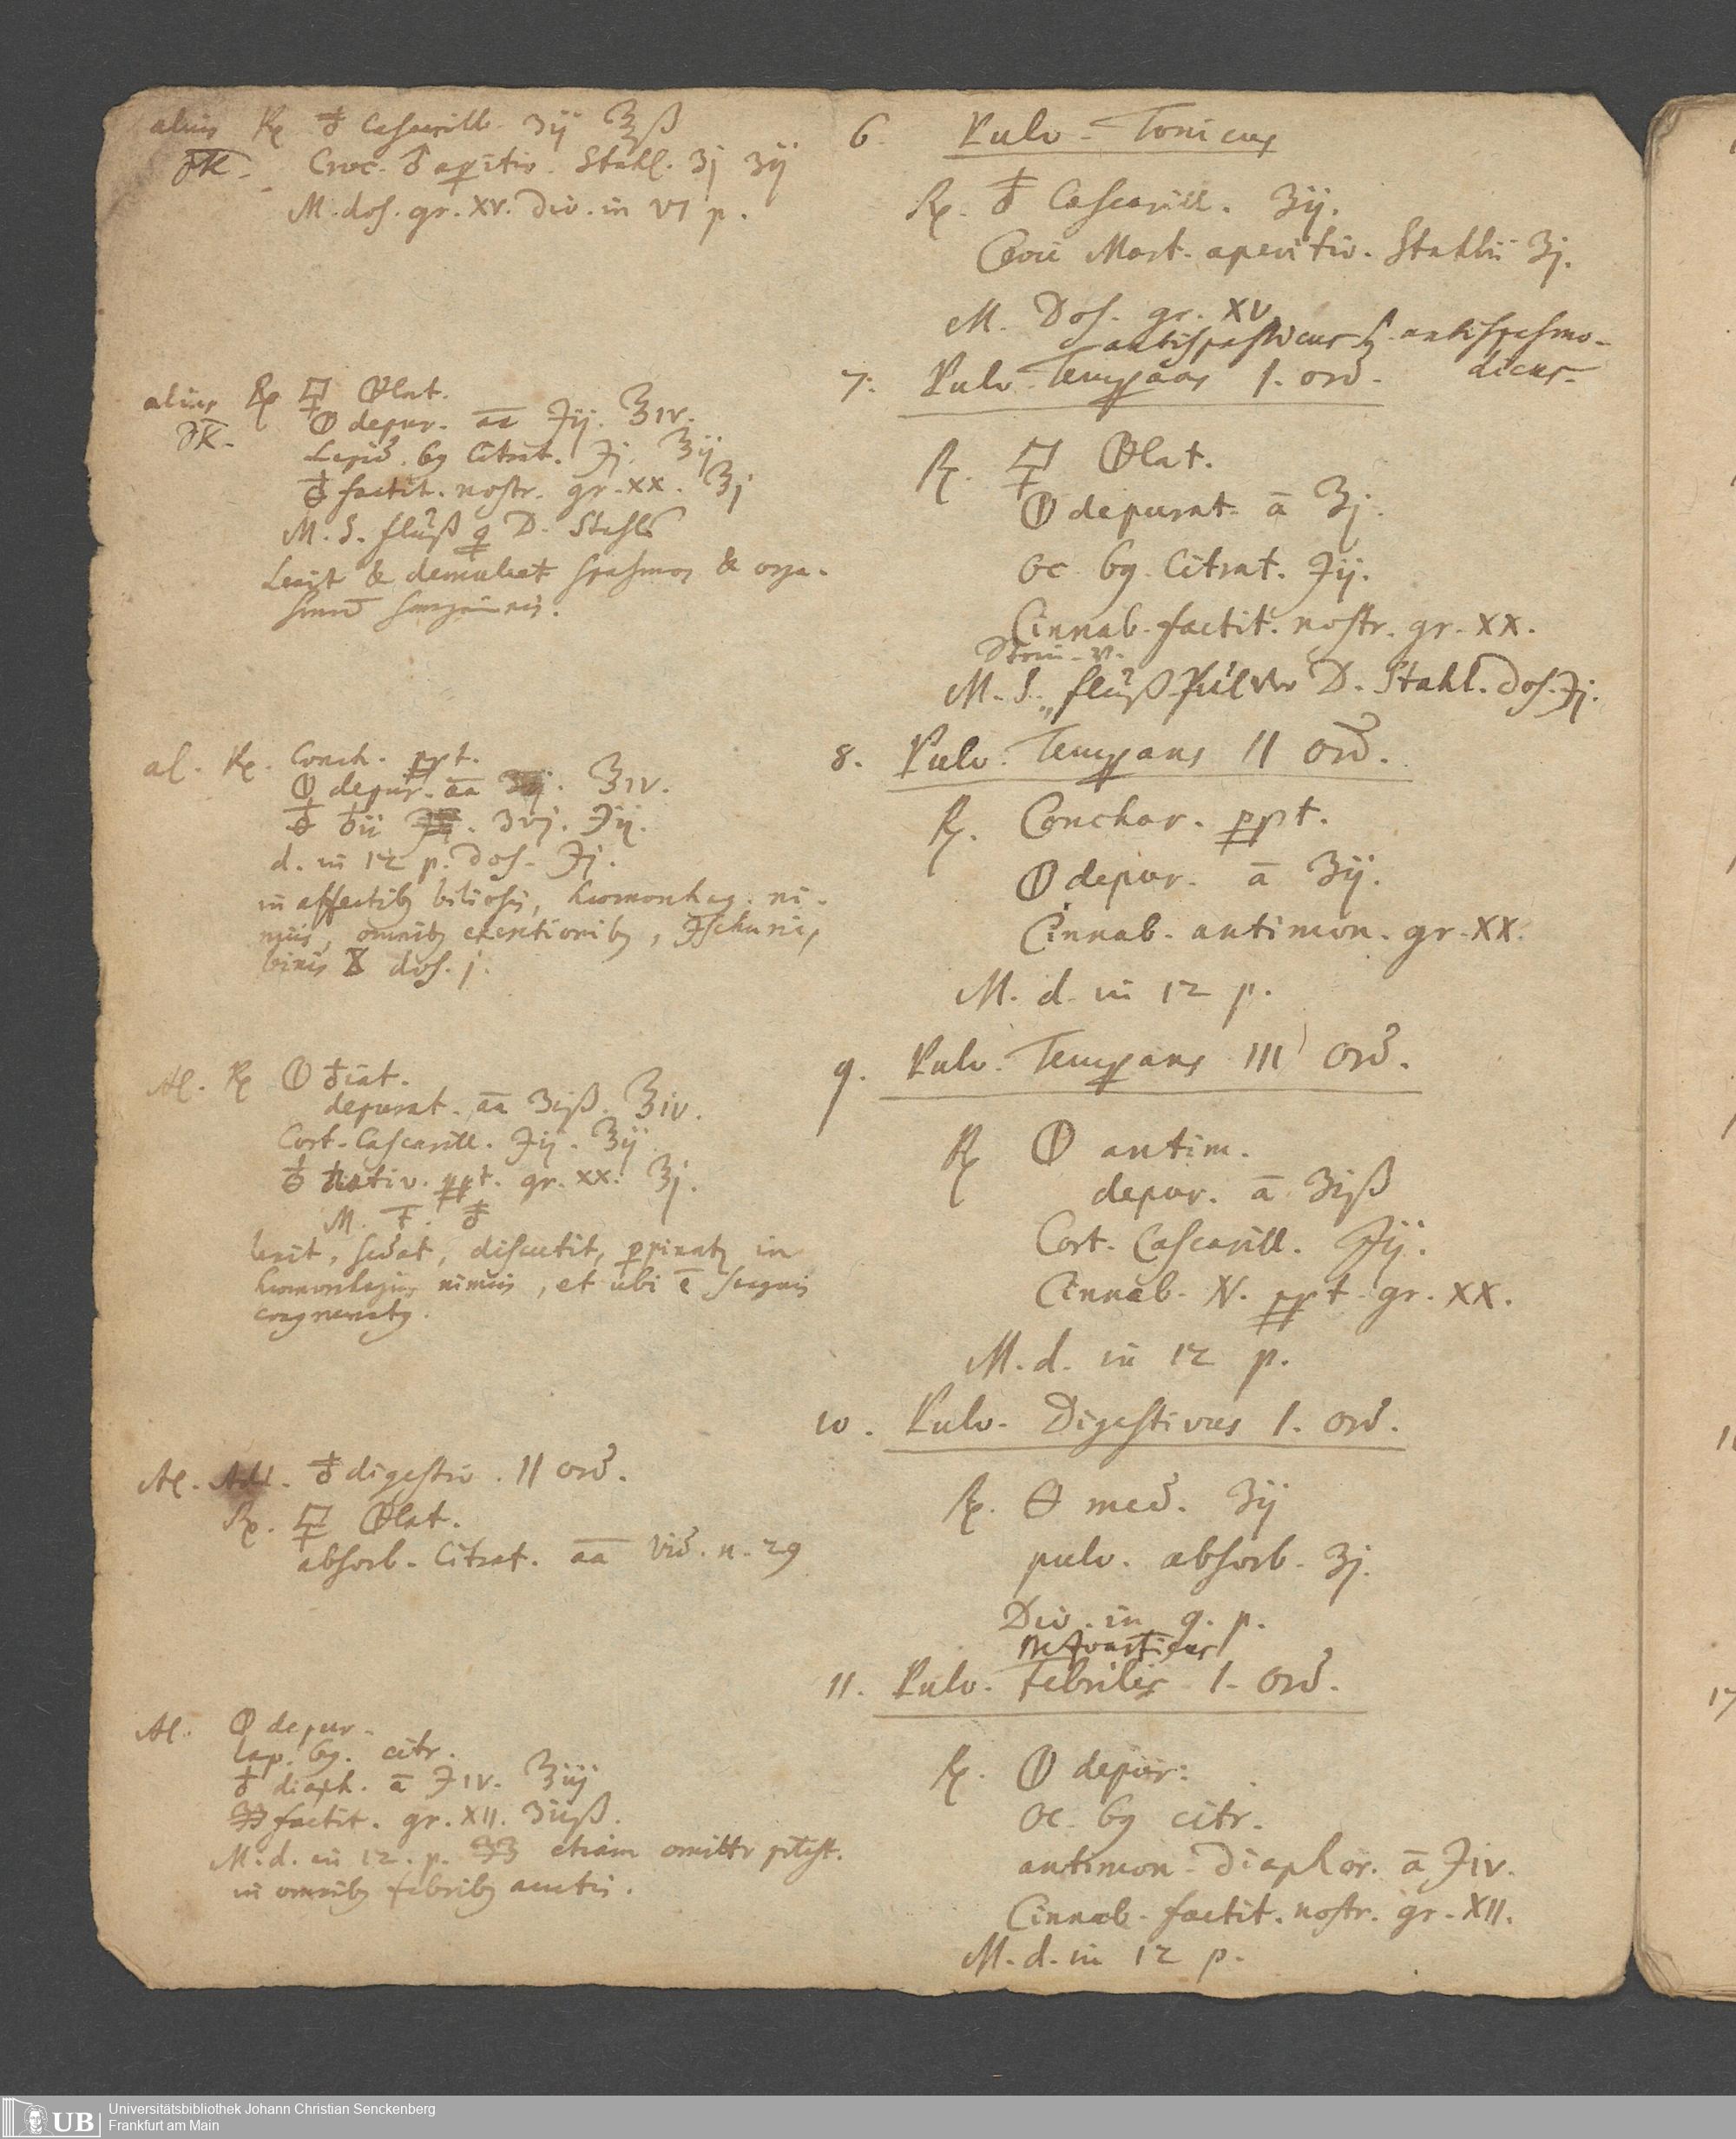 alius ℞ ♁ Cascarill. ʒij ℥ß
Croc. ♂ apitiv. Stahl. ʒj ʒij
M. dos. gr. XV. Div. in VI p.
alius ℞ 🜿 🜕lat.
🜕 depur. aa ℈ij. ℥IV.
Lapid. 69 Citrat. ℈j. ʒij
factit. nostr. gr. XX. ʒj
M. S. Flüß D. Stahls
Lenit & demulcet spasmos & orga-
smum sanguinis.
al. ℞. Conch. ppt.
🜕 depur. aa ℥IV.
ʒvj. ℈ij.
d. in 12 p. Dos. ℈j.
in affectib9 biliosis, hæmorrhag. ni-
miis, omnib9 excretionib9, Ischuriis,
binis dos. j.
Al. ℞ 🜕 ♁iat.
depurat. aa ʒiß. ℥iv.
Cort. Cascarill. ℈ij. ʒij
nativ. ppt. gr. XX. ʒj.
M. F.
lenit, sedat, discutit, in
hæmorrhagiis nimiis, et ubi
Al. Add. digestiv. II ord.
℞. 🜕lat.
absorb. Citrat. aa Vid. n. 29
Al. 🜕 depur.
Lap. 69. citr.
♁ diaph. a ℈IV. ʒiij
factit. gr. XII. ʒijß.
M. d. in 12. p. etiam omitti ptest.
in omnib9 febrib9 acutis.
6. Pulv. Tonicus
℞. Cascarill. ʒij.
Croci Mart. aperitiv. Stahlii ʒj.
M. Dos. gr. XV
antispasticus s. antispasmo-
dicus.
7. Pulv. Tempans I. ord.
℞. 🜕lat.
🜕 depurat. a ʒj.
oc 69. Citrat. ℈ij.
Cinnab. factit. nostr. gr. XX.
M. S. „ Flüß Pulver D. Stahl. Dos. ℈j.
8. Pulv. Tempans II ord.
℞. Conchar. ppt.
🜕 depur. a ʒij.
Cinnab. antimon. gr. XX.
M. d. in 12 p.
9. Pulv. Tempans III ord.
℞ 🜕 antim.
depur. a ʒiß
Cort. Cascarill. ℈ij.
Cinnab. N. ppt. gr. XX.
M. d. in 12 p.
10. Pulv. Digestivus I. ord.
℞. 🜔 med. ʒij
pulv. absorb. ʒj.
Div. in 9. p.
11. Pulv. Febrilis I. ord.
℞. 🜕 depur.
oc. 69 citr.
antimon. Diaphor. a ℈IV.
Cinnab. factit. nostr. gr. XII.
M. d. in 12 p.
UB
Universitätsbibliothek Johann Christian Senckenberg
Frankfurt am Main